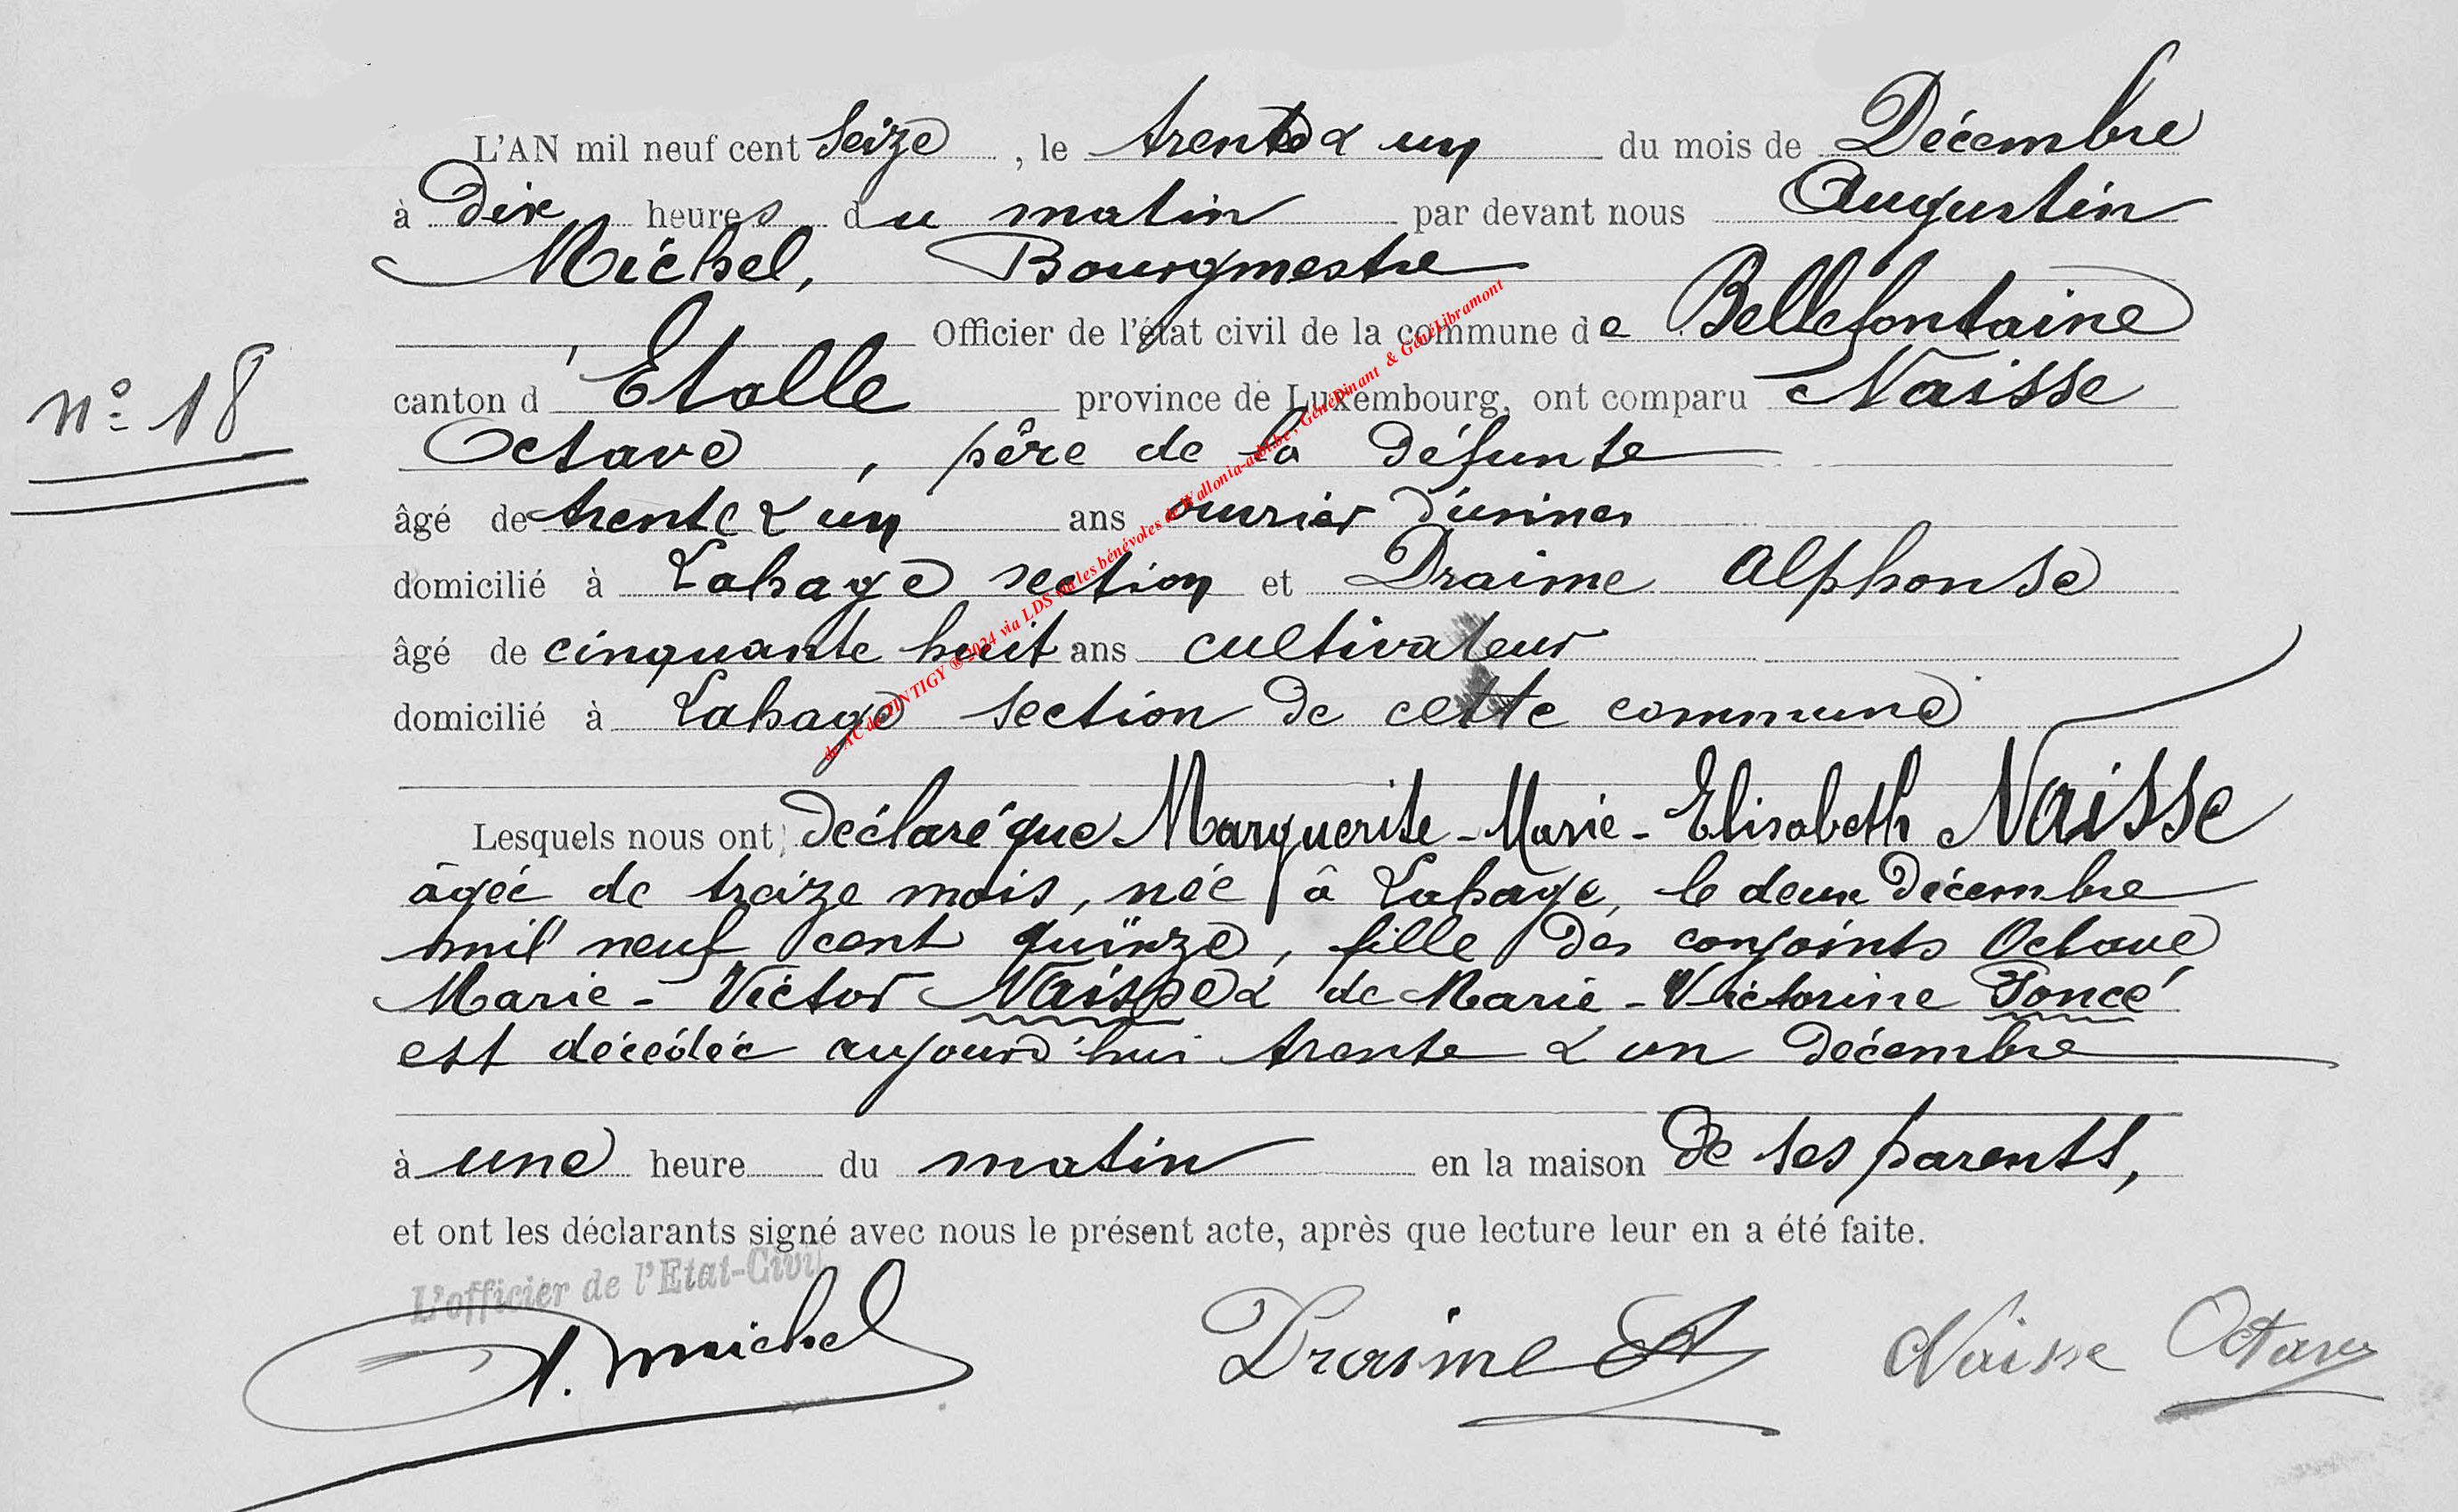 L'AN mil neuf cent seize, le trente & un du mois de Décembre
à dix heures du matin par devant nous Augustin
Michel, Bourgmestre
Officier de l'état civil de la commune de Bellefontaine
n° 18
canton d'Etalle province de Luxembourg, ont comparu Naisse
Octave, père de la défunte
âgé de trente & un ans ouvrier d'usines
domicilié à Lahage section et Draime Alphonse
âgé de cinquante huit ans cultivateur
domicilié à Lahage section de cette commune
Lesquels nous ont déclaré que Marguerite-Marie-Elisabeth Naisse
âgée de treize mois, née à Lahage, le deux Décembre
mil neuf cent quinze, fille des conjoints Octave
Marie-Victor Naisse & de Marie-Victorine Poncé
est décédée aujourd'hui trente & un décembre
à une heure du matin en la maison de ses parents,
et ont les déclarants signé avec nous le présent acte, après que lecture leur en a été faite.
L'officier de l'Etat-Civil
A. Michel Draime A Naisse Octave
de AC de TINTIGY ® 2024 via LDS via les bénévoles de Wallonia-asbl.be, GénéDinant & GénéLibramont